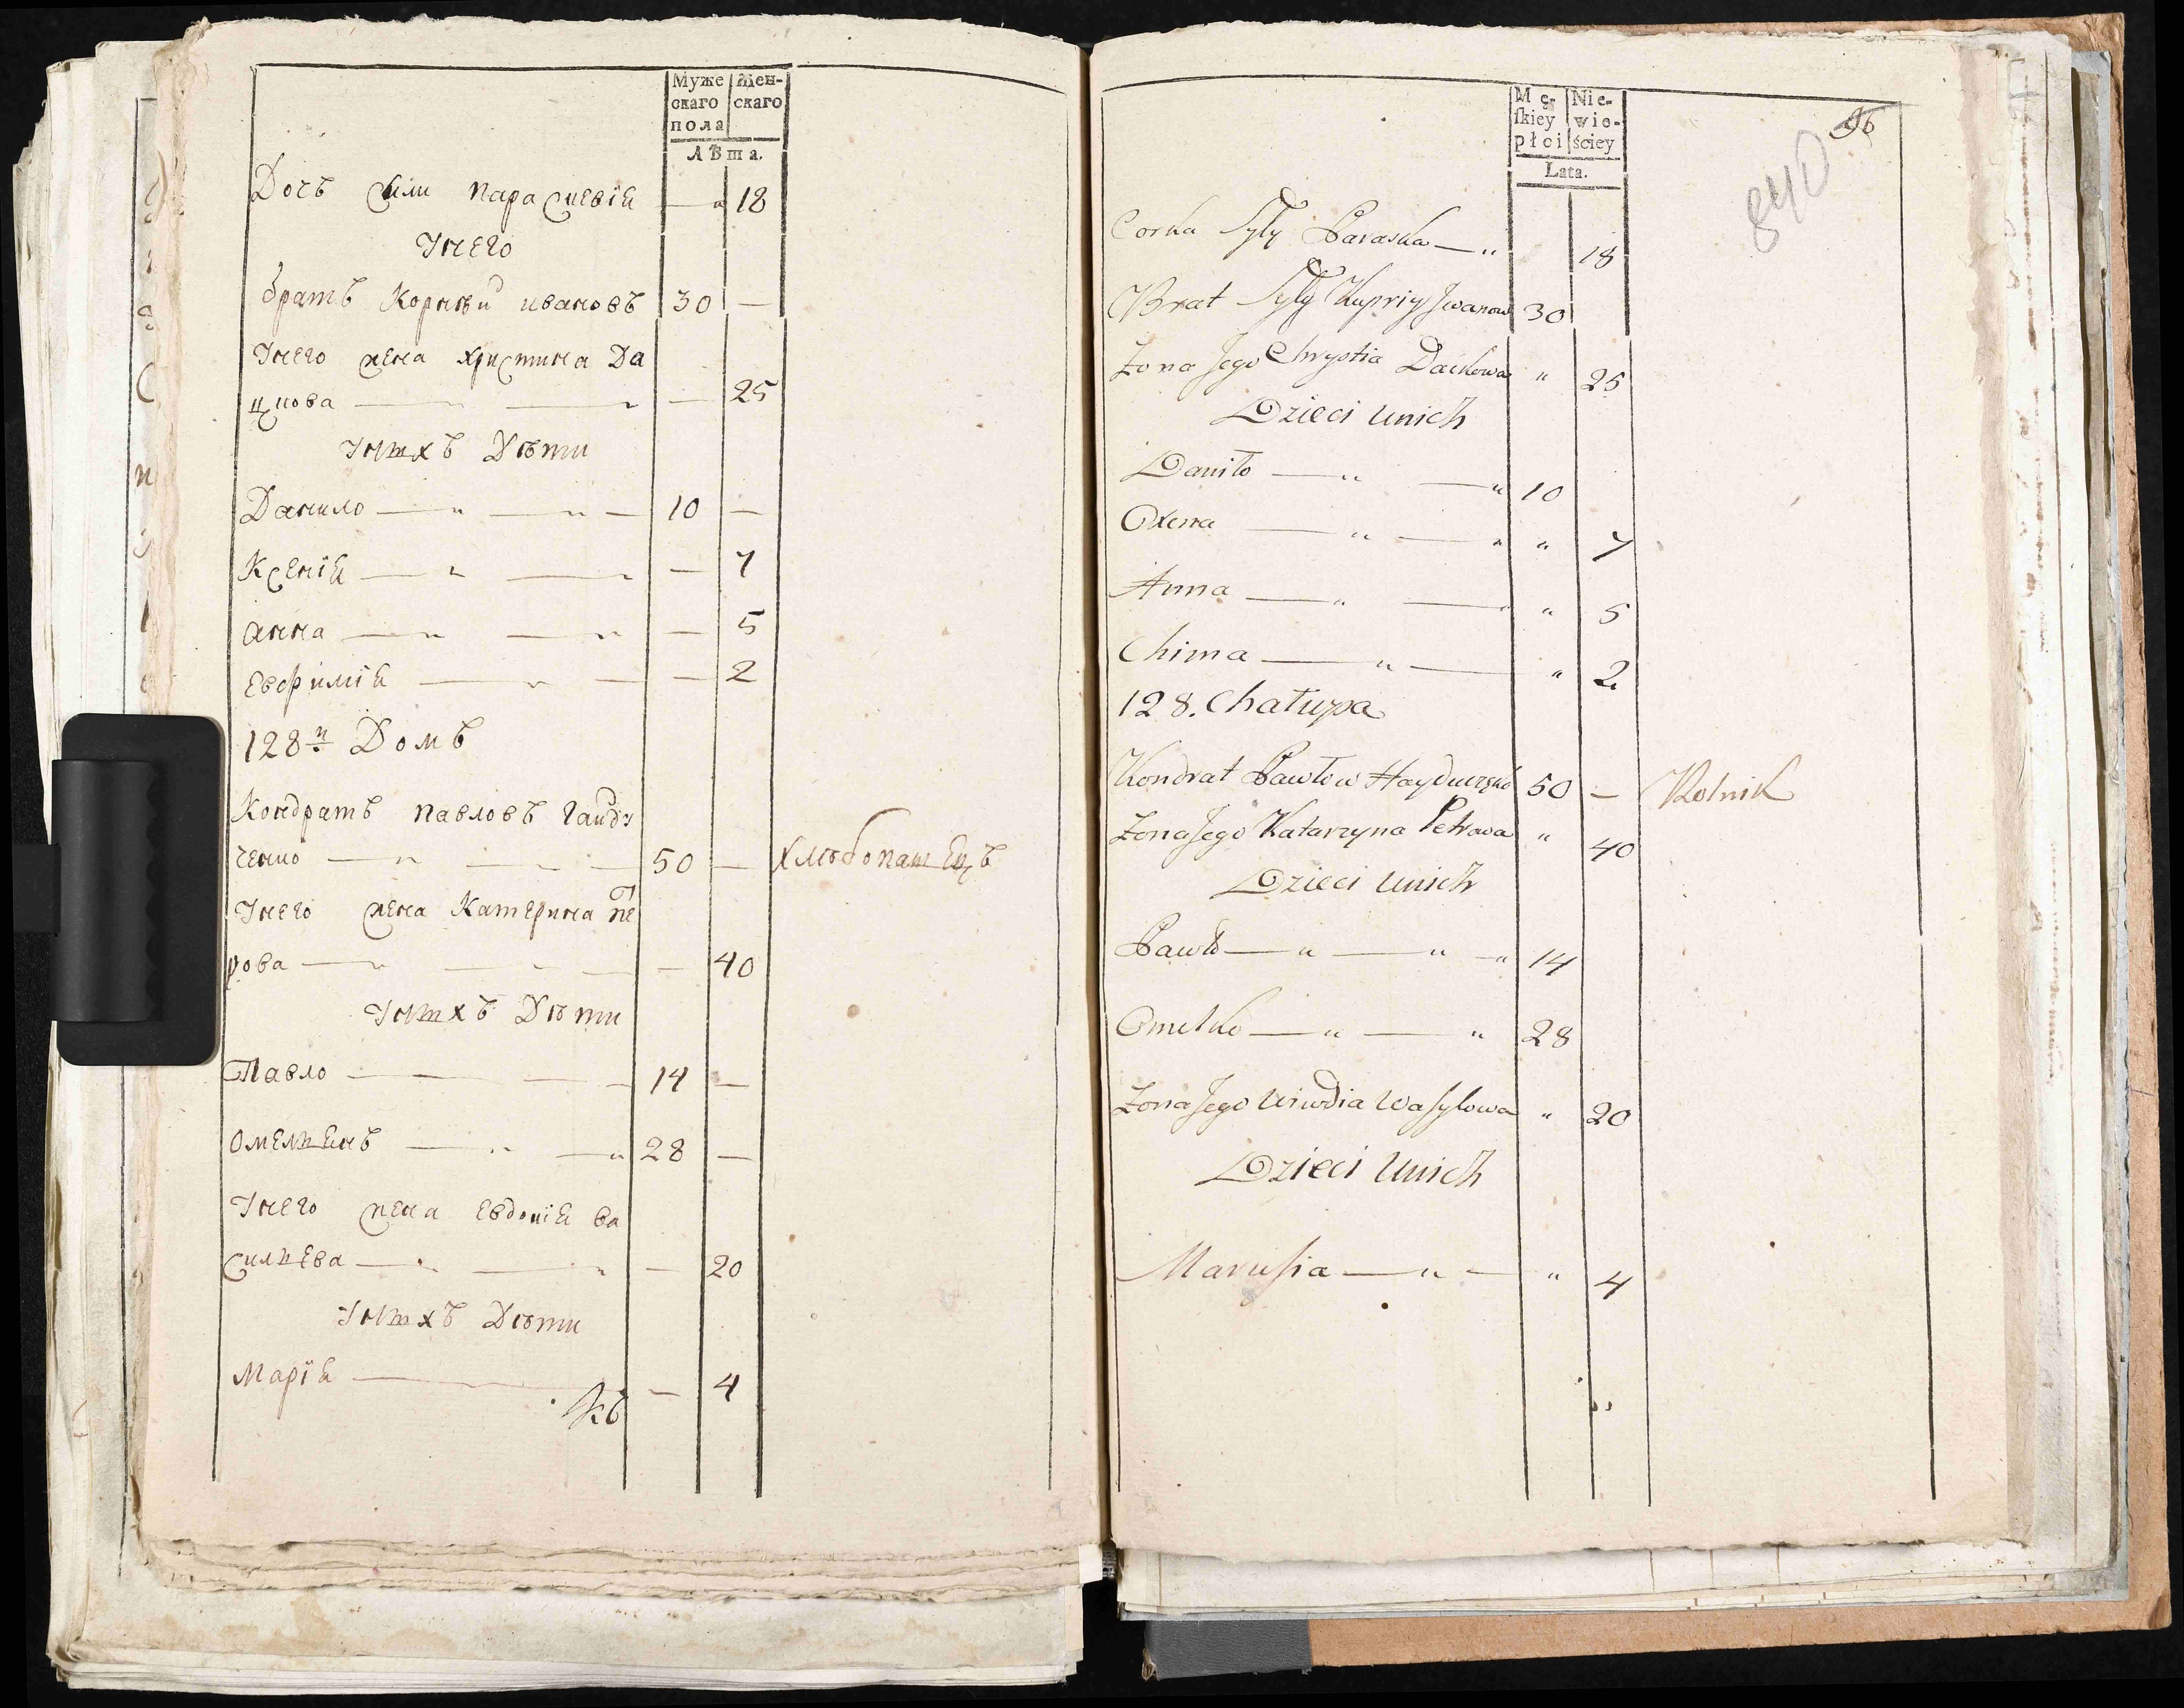 Муже Жен-
скаго скаго
пола
Лѣта.
Дочь Сили Параскевія — " 18
У него
братъ Корнѣй ивановъ 30 —
У него жена христина Да
цкова — — — 25
У нихъ Дѣти
Данило — " — " — 10 —
Ксенія — " — " — 7
анна — " — " — 5
Евфимія — " — — 2
128й Домъ
Кондратъ павловъ Гайду
ченко — " — " — 50 — хлѣбопашецъ
У него жена Катерина пет
рова — " — " — — 40
У нихъ Дѣти
Павло — — — 14 —
Омельянъ — " — " 28 —
У него жена Евдокія Ва
сильева — " — " — 20
У нихъ Дѣти
Марія — — 4
Mę- Nie-
ſkiey wie-
płci ściey
Lata.
96
840
Corka Syły Paraska — " 18
Brat Syły Kupriy Jwanow 30
Zona Jego Chrystia Dackowa " 25
Dzieci unich
Daniło — " — " 10
Oxena — " — " " 7
Anna — " — " " 5
Chima — " — " 2
128. Chałupa
Kondrat Pawłow Hayduczęko 50 — Rolnik
Zona Jego Katarzyna Petrowa " 40
Dzieci unich
Pawło — " — " — " 14
Omelko — " — " 28
Zona Jego Wiwdia Wasylowa " 20
Dzieci Unich
Marusia — " — " 4